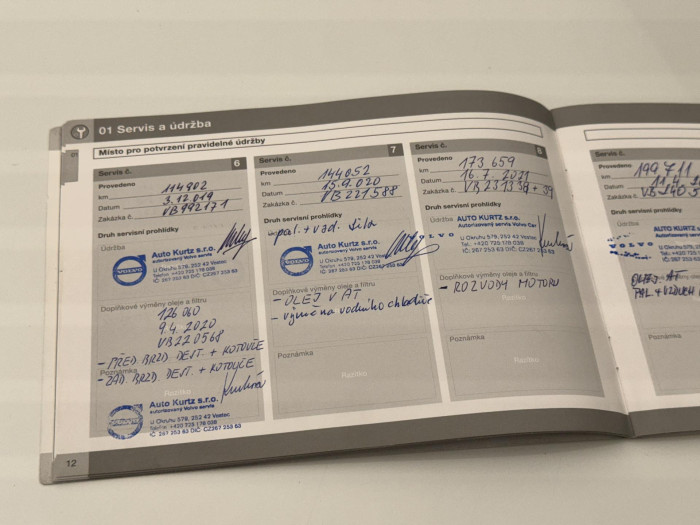 01 Servis a údržba
Místo pro potvrzení pravidelné údržby
Servis č. 6
Provedeno
km 114902
Datum 3.12.019
Zakázka č. VB192171
Druh servisní prohlídky
Údržba
VOLVO
Auto Kurtz s.r.o.
autorizovaný Volvo servis
U Okruhu 579, 252 42 Vestec
Telefon: +420 725 178 038
IČ: 267 253 63 DIČ: CZ267 253 63
Doplňkové výměny oleje a filtru
126 060
9.4.2020
VB220568
- PŘED. BRZD. DEST. + KOTOUČE
- ZAD. BRZD. DEST. + KOTOUČE
Poznámka
Razítko
Auto Kurtz s.r.o.
autorizovaný Volvo servis
U Okruhu 579, 252 42 Vestec
Telefon: +420 725 178 038
IČ: 267 253 63 DIČ: CZ267 253 63
12
Servis č. 7
Provedeno
km 144052
Datum 15.9.020
Zakázka č. VB227588
Druh servisní prohlídky
pal. + vzd. filtr
Údržba
VOLVO
Auto Kurtz s.r.o.
autorizovaný Volvo servis
U Okruhu 579, 252 42 Vestec
Telefon: +420 725 178 038
IČ: 267 253 63 DIČ: CZ267 253 63
Doplňkové výměny oleje a filtru
- OLEJ V AT
- výměna vodního chladiče
Poznámka
Razítko
Servis č. 8
Provedeno
km 173 659
Datum 16.7.2021
Zakázka č. VB231338 + 39
Druh servisní prohlídky
Údržba
AUTO KURTZ s.r.o.
Autorizovaný servis Volvo Car
VOLVO
U Okruhu 579, 252 42 Vestec
Tel.: +420 725 178 038
IČ: 267 253 63 DIČ: CZ267 253 63
Doplňkové výměny oleje a filtru
- ROZVODY MOTORU
Razítko
Poznámka
Servis č.
Provedeno
km 199 711
Datum
Zakázka č.
Druh servisní prohlídky
Údržba
AUTO KU
Autorizovaný
VOLVO
U Okruhu 579,
Tel.: +420 725
IČ: 267 253 63
Doplňkové výměny oleje a filtru
OLEJ AT
PAL + VZDUCH
Poznámka